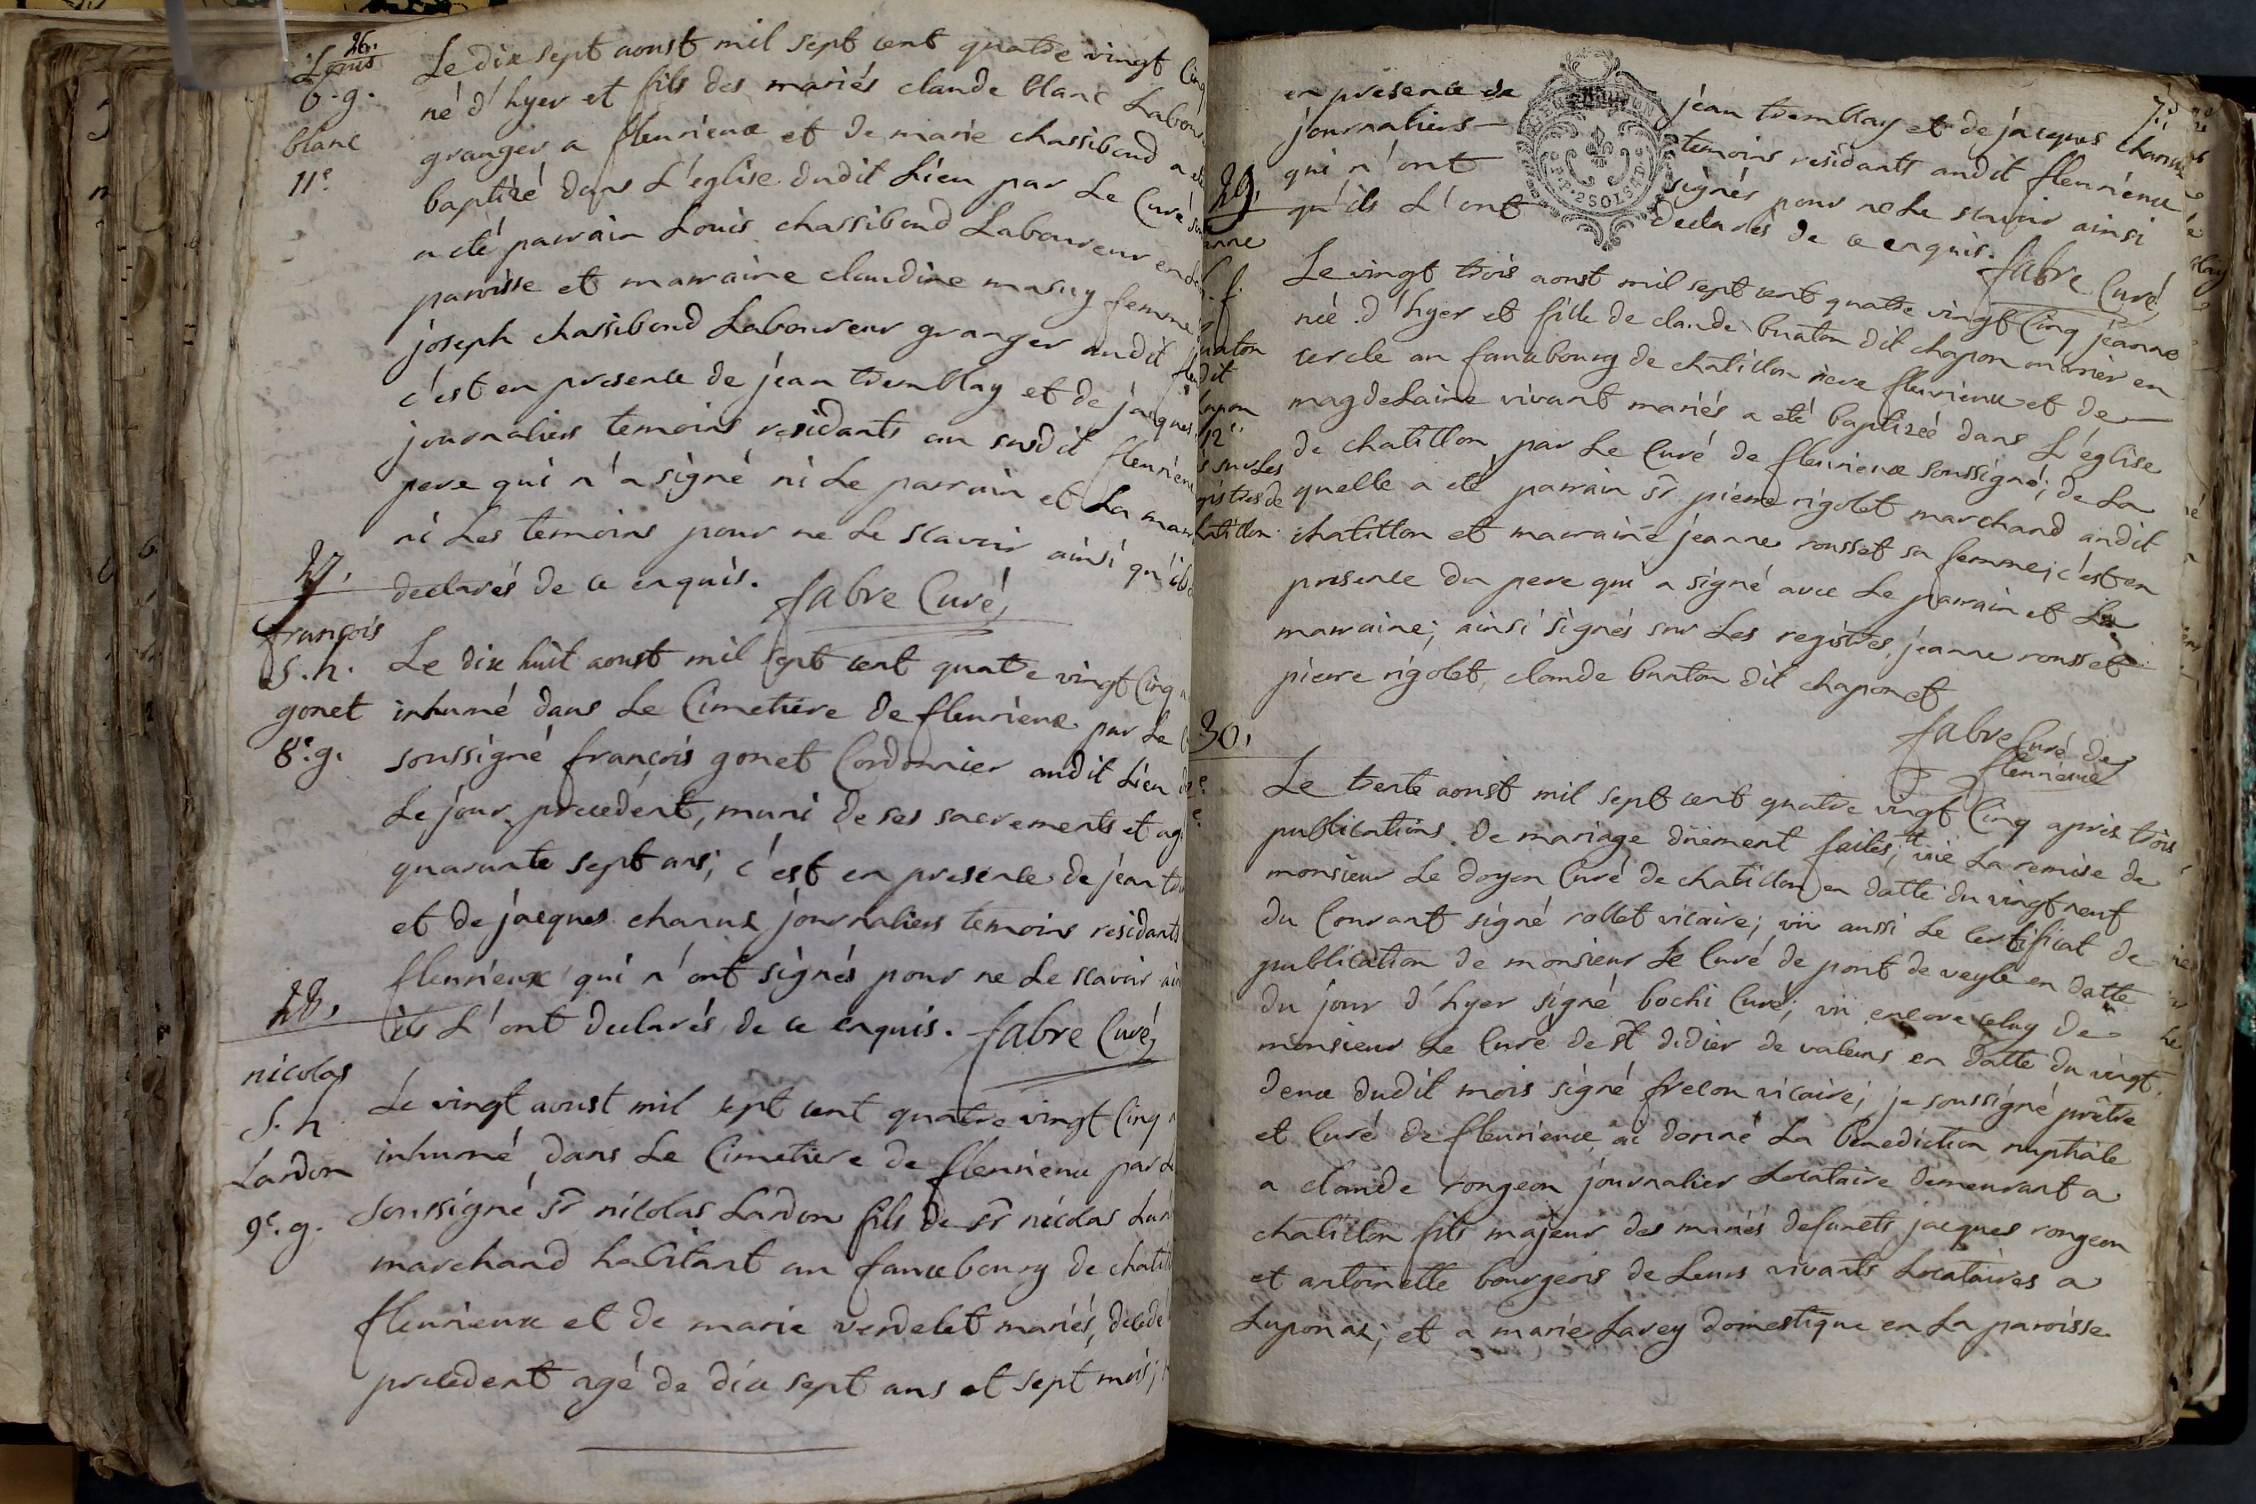 26.
Louis
b.g.
blanc
11e
Le dix sept aoust mil sept cent quatre vingt Cinq
né d'hyer et fils des mariés claude blanc Labour
granger a fleurieux et de marie chassiboud a eté
baptizé dans L'église dudit Lieu par Le Curé
a eté parrain Louis chassiboud Laboureur en
paroisse et marraine claudine masuy femme
joseph chassiboud Laboureur granger audit
c'est en presence de jean tremblay et de jacques
journaliers temoins residants au susdit fleurieux
pere qui n'a signé ni Le parrain et La mar
ni Les temoins pour ne Le scavoir ainsi qu'ils
declarés de ce enquis. fabre Curé
27.
françois
S.h.
gonet
8e.g.
Le dix huit aoust mil sept cent quatre vingt Cinq a
inhumé dans Le Cimetière de fleurieux par Le C
soussigné françois gonet Cordonnier audit Lieu
Le jour precedent, muni de ses sacrements et ag
quarante sept ans; c'est en presence de jean
et de jacques charux journaliers temoins residants
fleurieux qui n'ont signés pour ne Le scavoir ai
ils L'ont declarés de ce enquis. fabre Curé
28.
nicolas
S.h
Lardon
9e.g.
Le vingt aoust mil sept cent quatre vingt Cinq a
inhumé dans Le Cimetiere de fleurieux par
soussigné sr nicolas Lardon fils de sr nicolas Lar
marchand habitant au fauxbourg de chatil
fleurieux et de marie verdelet mariés, decedé
precedent agé de dix sept ans et sept mois;
en presence de jean tremblay et de jacques charux
journaliers temoins residants audit fleurieux
qui n'ont signés pour ne Le scavoir ainsi
qu'ils L'ont declarés de ce enquis.
fabre Curé
29.
anne
.f.
uaton
dit
12e
sur Les
gistres de
hatillon
Le vingt trois aoust mil sept cent quatre vingt Cinq jeanne
née d'hyer et fille de claude buaton dit chapon
cercle au fauxbourg de chatillon riere fleurieux et de
magdelaine vivant mariés a eté baptizée dans L'église
de chatillon par Le Curé de fleurieux soussigné; de La
quelle a eté parrain sr. pierre rigolet marchand audit
chatillon et marraine jeanne rousset sa femme; c'est en
presence du pere qui a signé avec Le parrain et La
marraine; ainsi signés sur Les registres, jeanne rousset
pierre rigolet, claude buaton dit chapon et
fabre Curé de
fleurieux
30.
Le trente aoust mil sept cent quatre vingt Cinq après trois
publications de mariage düement faites; vüe La remise de
monsieur Le doyen Curé de chatillon en datte du vingt neuf
du Courant signé rollet vicaire; vü aussi Le Certificat de
publication de monsieur Le Curé de pont de veyle en datte
du jour d'hyer signé bochi Curé; vü encore celuy de
monsieur Le Curé de st didier de valeins en datte du vingt
deux dudit mois signé frelon vicaire; je soussigné prêtre
et Curé de fleurieux ai donné La benediction nuptiale
a claude rongeon journalier Locataire demeurant a
chatillon fils majeur des mariés defunts jacques rongeon
et antoinette bourgeois de Leurs vivants Locataires a
Luponas; et a marie Lavey domestique en La paroisse